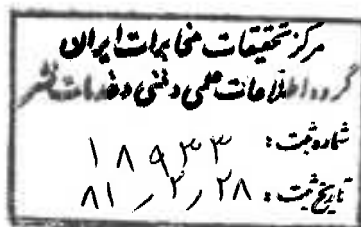 مرکز تحقیقات مخابرات ایران
گروه اطلاعات علمی و فنی و خدمات نشر
شماره ثبت: ۱۸۹۳۳
تاریخ ثبت: ۸۱٫۲٫۲۸